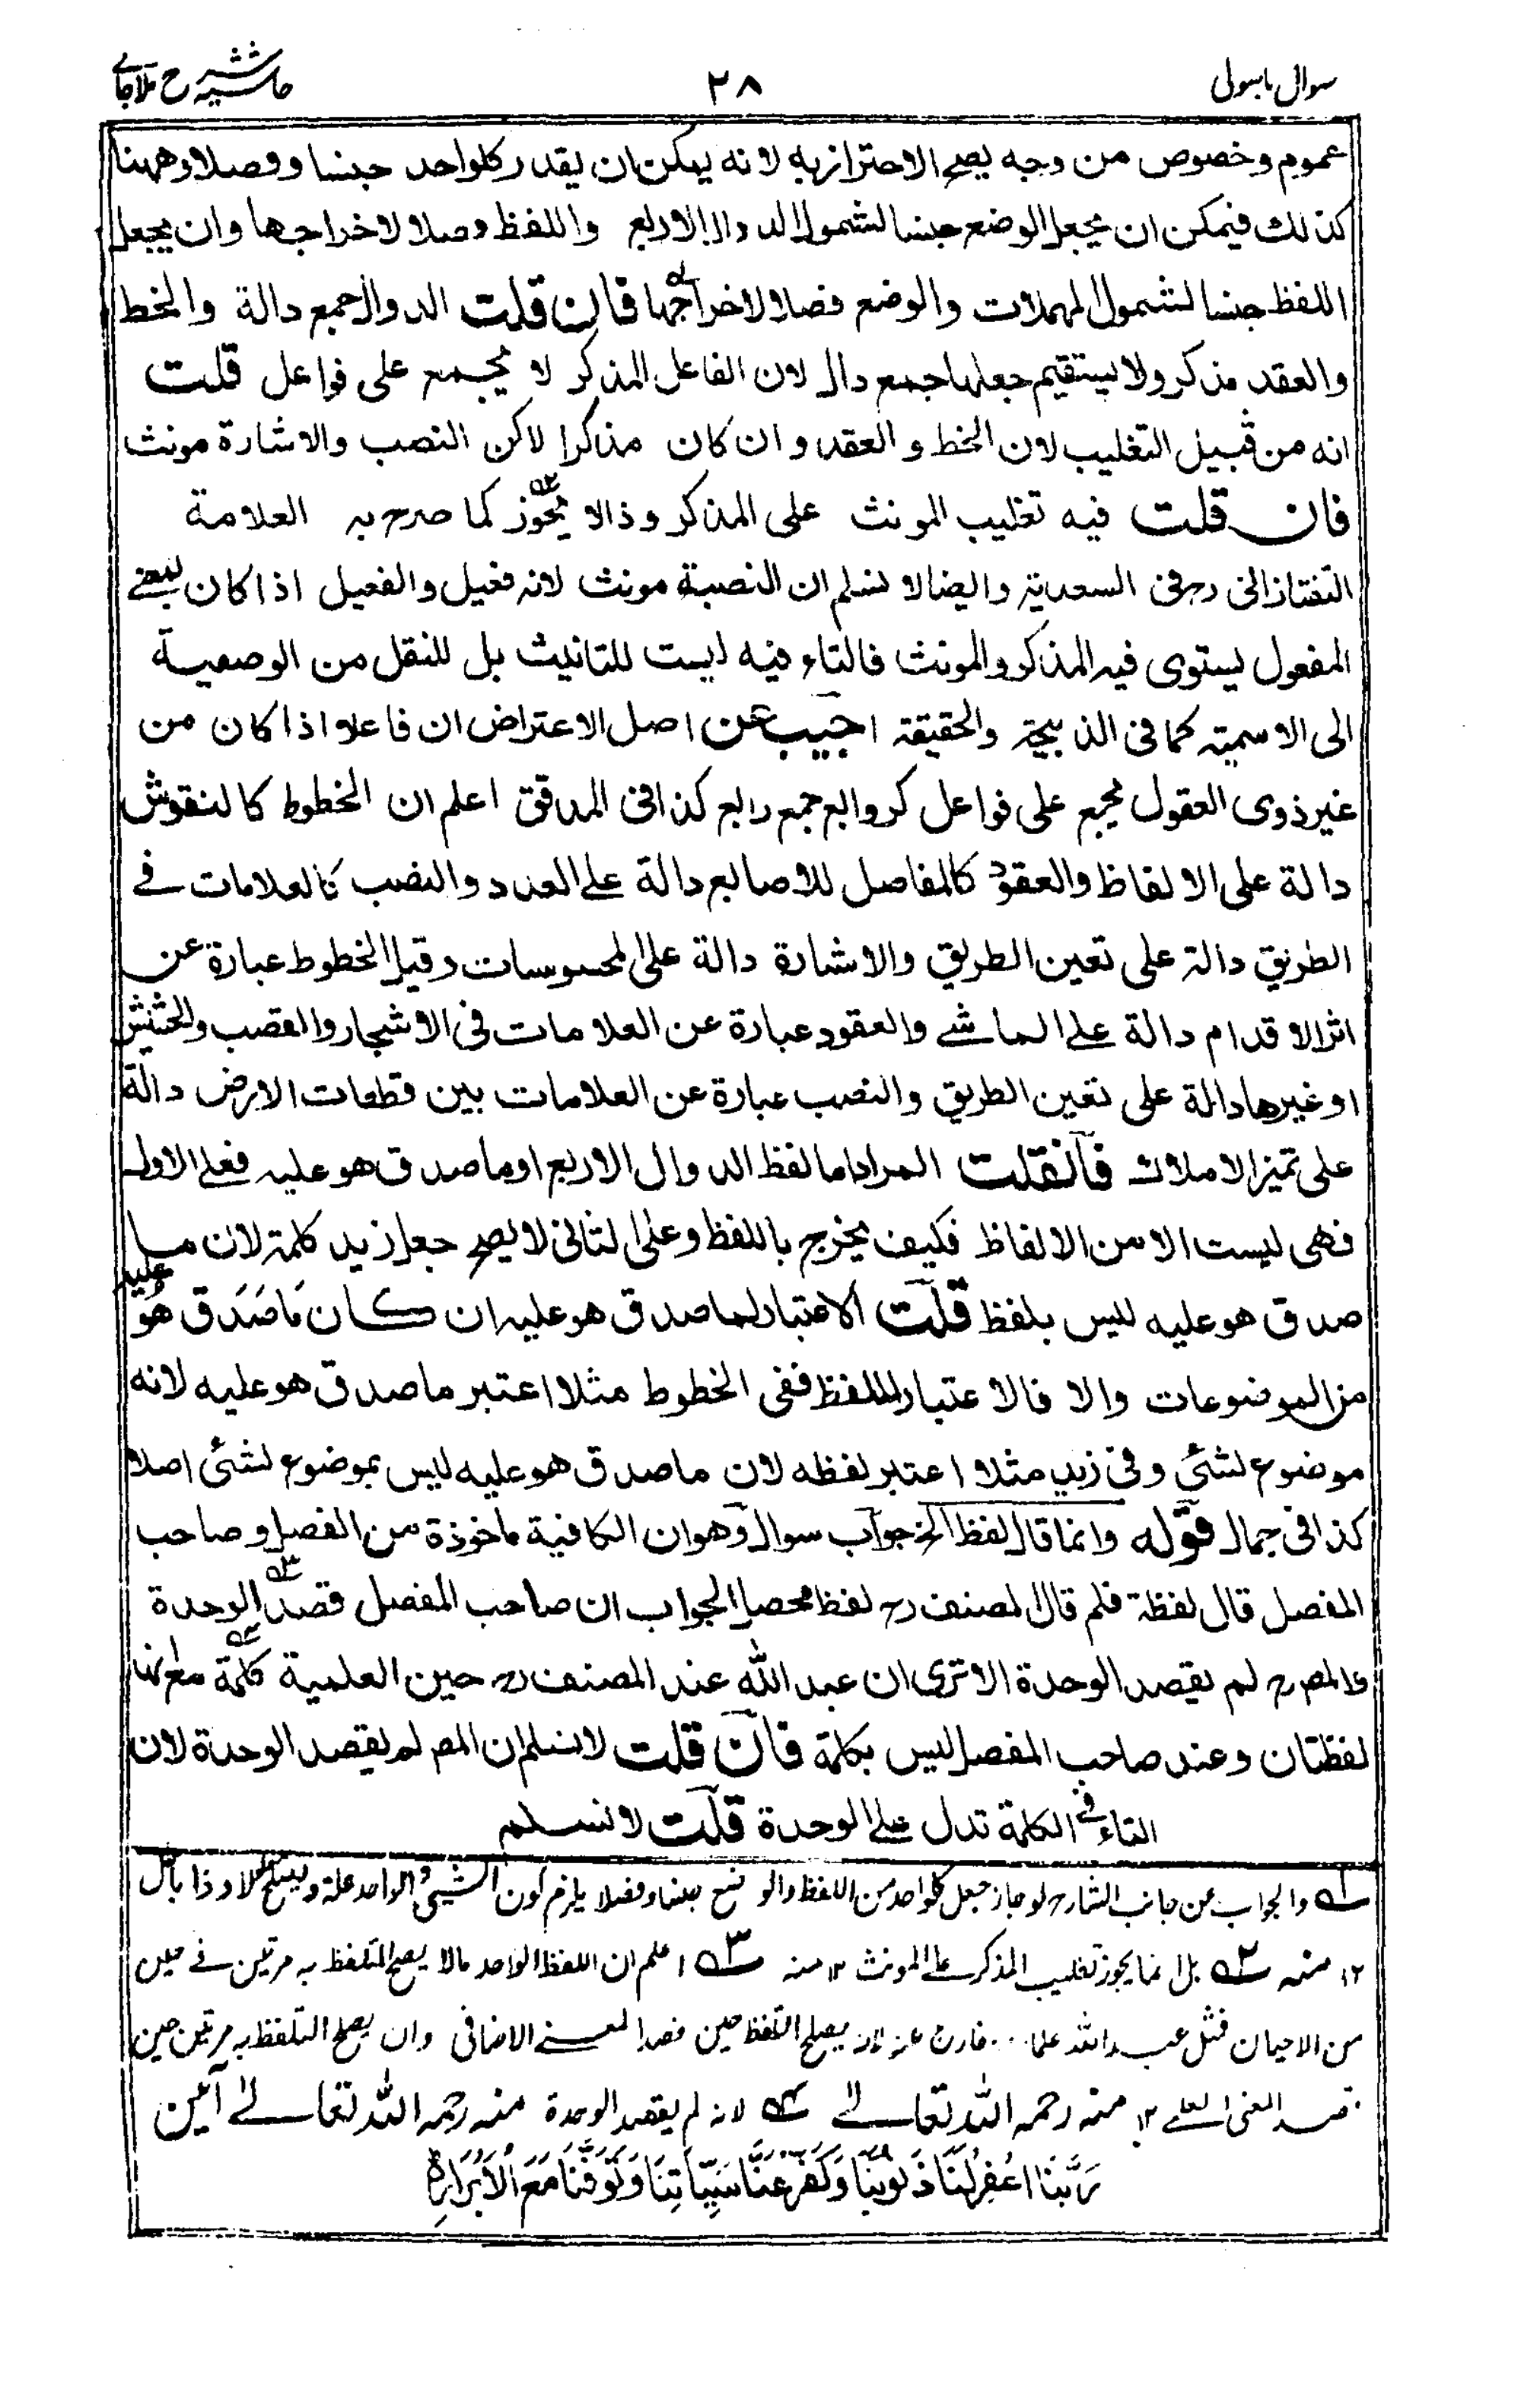 سوال باسولی ۲۸ حاشیہ شرح ملا جامی
عموم وخصوص من وجه يصح الاحترازبه لانه يمكن ان يقدر كلواحد جنسا وفصلا وههنا
كذلك فيمكن ان يجعل الوضع جنسا لشموله الدوال الاربع واللفظ فصلا لاخراجها وان يجعل
اللفظ جنسا لشموله المهملات والوضع فصلا لاخراجها فان قلت الدوال جمع دالة والخط
والعقد مذكر ولا يستقيم جعلها جمع دال لان الفاعل المذكر لا يجمع على فواعل قلت
انه من قبيل التغليب لان الخط والعقد وان كان مذكرا لاكن النصب والاشارة مونث
فان قلت فيه تغليب المونث على المذكر وذا لا يجوز كما صرح به العلامة
التفتازانى رح فى السعدية وايضا لا نسلم ان النصبة مونث لانه فعيل والفعيل اذا كان بمعنے
المفعول يستوى فيه المذكر والمونث فالتاء فيه ليست للتانيث بل للنقل من الوصفية
الى الاسمية كما فى الذبيحة والحقيقة اجيب عن اصل الاعتراض ان فاعلا اذا كان من
غير ذوى العقول يجمع على فواعل كروابع جمع رابع كذا فى المدقق اعلم ان الخطوط كالنقوش
دالة على الالفاظ والعقود كالمفاصل للاصابع دالة على العدد والنصب كالعلامات فے
الطريق دالة على تعين الطريق والاشارة دالة على المحسوسات وقيل الخطوط عبارة عن
اثر الاقدام دالة على الماشے والعقود عبارة عن العلامات فى الاشجار والقصب والحشيش
او غيرها دالة على تعين الطريق والنصب عبارة عن العلامات بين قطعات الارض دالة
على تميز الاملاك فانقلت المراد اما لفظ الدوال الاربع او ما صدق هو عليه فعلى الاول
فهى ليست الا من الالفاظ فكيف يخرج باللفظ وعلى الثانى لا يصح جعل زيد كلمة لان ما
صدق هو عليه ليس بلفظ قلت الاعتبار لما صدق هو عليه ان كان ما صدق هو عليه
من الموضوعات والا فالاعتبار للفظ ففى الخطوط مثلا اعتبر ما صدق هو عليه لانه
موضوع لشئ وفى زيد مثلا اعتبر لفظه لان ما صدق هو عليه ليس بموضوع لشئ اصلا
كذا فى جمال قوله وانما قال لفظ الخ جواب سوال وهو ان الكافية ماخوذة من المفصل وصاحب
المفصل قال لفظة فلم قال المصنف رح لفظ محصل الجواب ان صاحب المفصل قصد الوحدة
والمص رح لم يقصد الوحدة الا ترى ان عبد الله عند المصنف رح حين العلمية كلمة مع انها
لفظتان وعند صاحب المفصل ليس بكلمة فان قلت لا نسلم ان المص لم يقصد الوحدة لان
التاء فى الكلمة تدل على الوحدة قلت لا نسلم
ـه والجواب عن جانب الشارح لو جاز جعل كلواحد من اللفظ والوضع جنسا وفصلا يلزم كون الشئ الواحد علة و وذا باطل
۱۲ منه ۲ـه بل انما يجوز تغليب المذكر على المونث ۱۲ منه ۳ـه اعلم ان اللفظ الواحد ما لا يصح التلفظ به مرتين فے حين
من الاحيان فمثل عبد الله علما خارج عنه لانه يصلح التلفظ حين قصد المعنے الاضافى وان يصح التلفظ به مرتين حين
قصد المعنى العلمے ۱۲ منه رحمه الله تعالے ـه لانه لم يقصد الوحدة منه رحمه الله تعالے آمين
رَبَّنَا اغْفِرْلَنَا ذُنُوبَنَا وَكَفِّرْ عَنَّا سَيِّاٰتِنَا وَتَوَفَّنَا مَعَ الْاَبْرَارِ